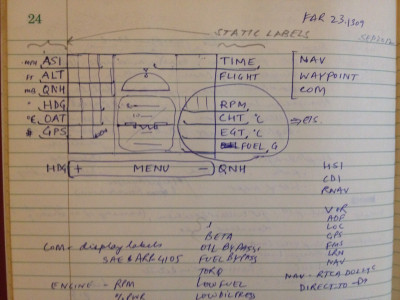 24
FAR 23.1309
STATIC LABELS
ASI TIME, NAV
ft ALT FLIGHT WAYPOINT
mB QNH COM
° HDG RPM,
°C OAT CHT, °C
# GPS EGT, °C
FUEL, G
HDG + MENU - QNH
HSI
CDI
RNAV
VOR
ADF
BETA LOC
COM - display labels OIL BYPASS GPS
SAE & ARP 4105 FUEL BYPASS FMS
TORQ LRN
NAV
ENGINE - RPM LOW FUEL NAV - RTCA DO
LOW OIL PRESS DIRECT TO